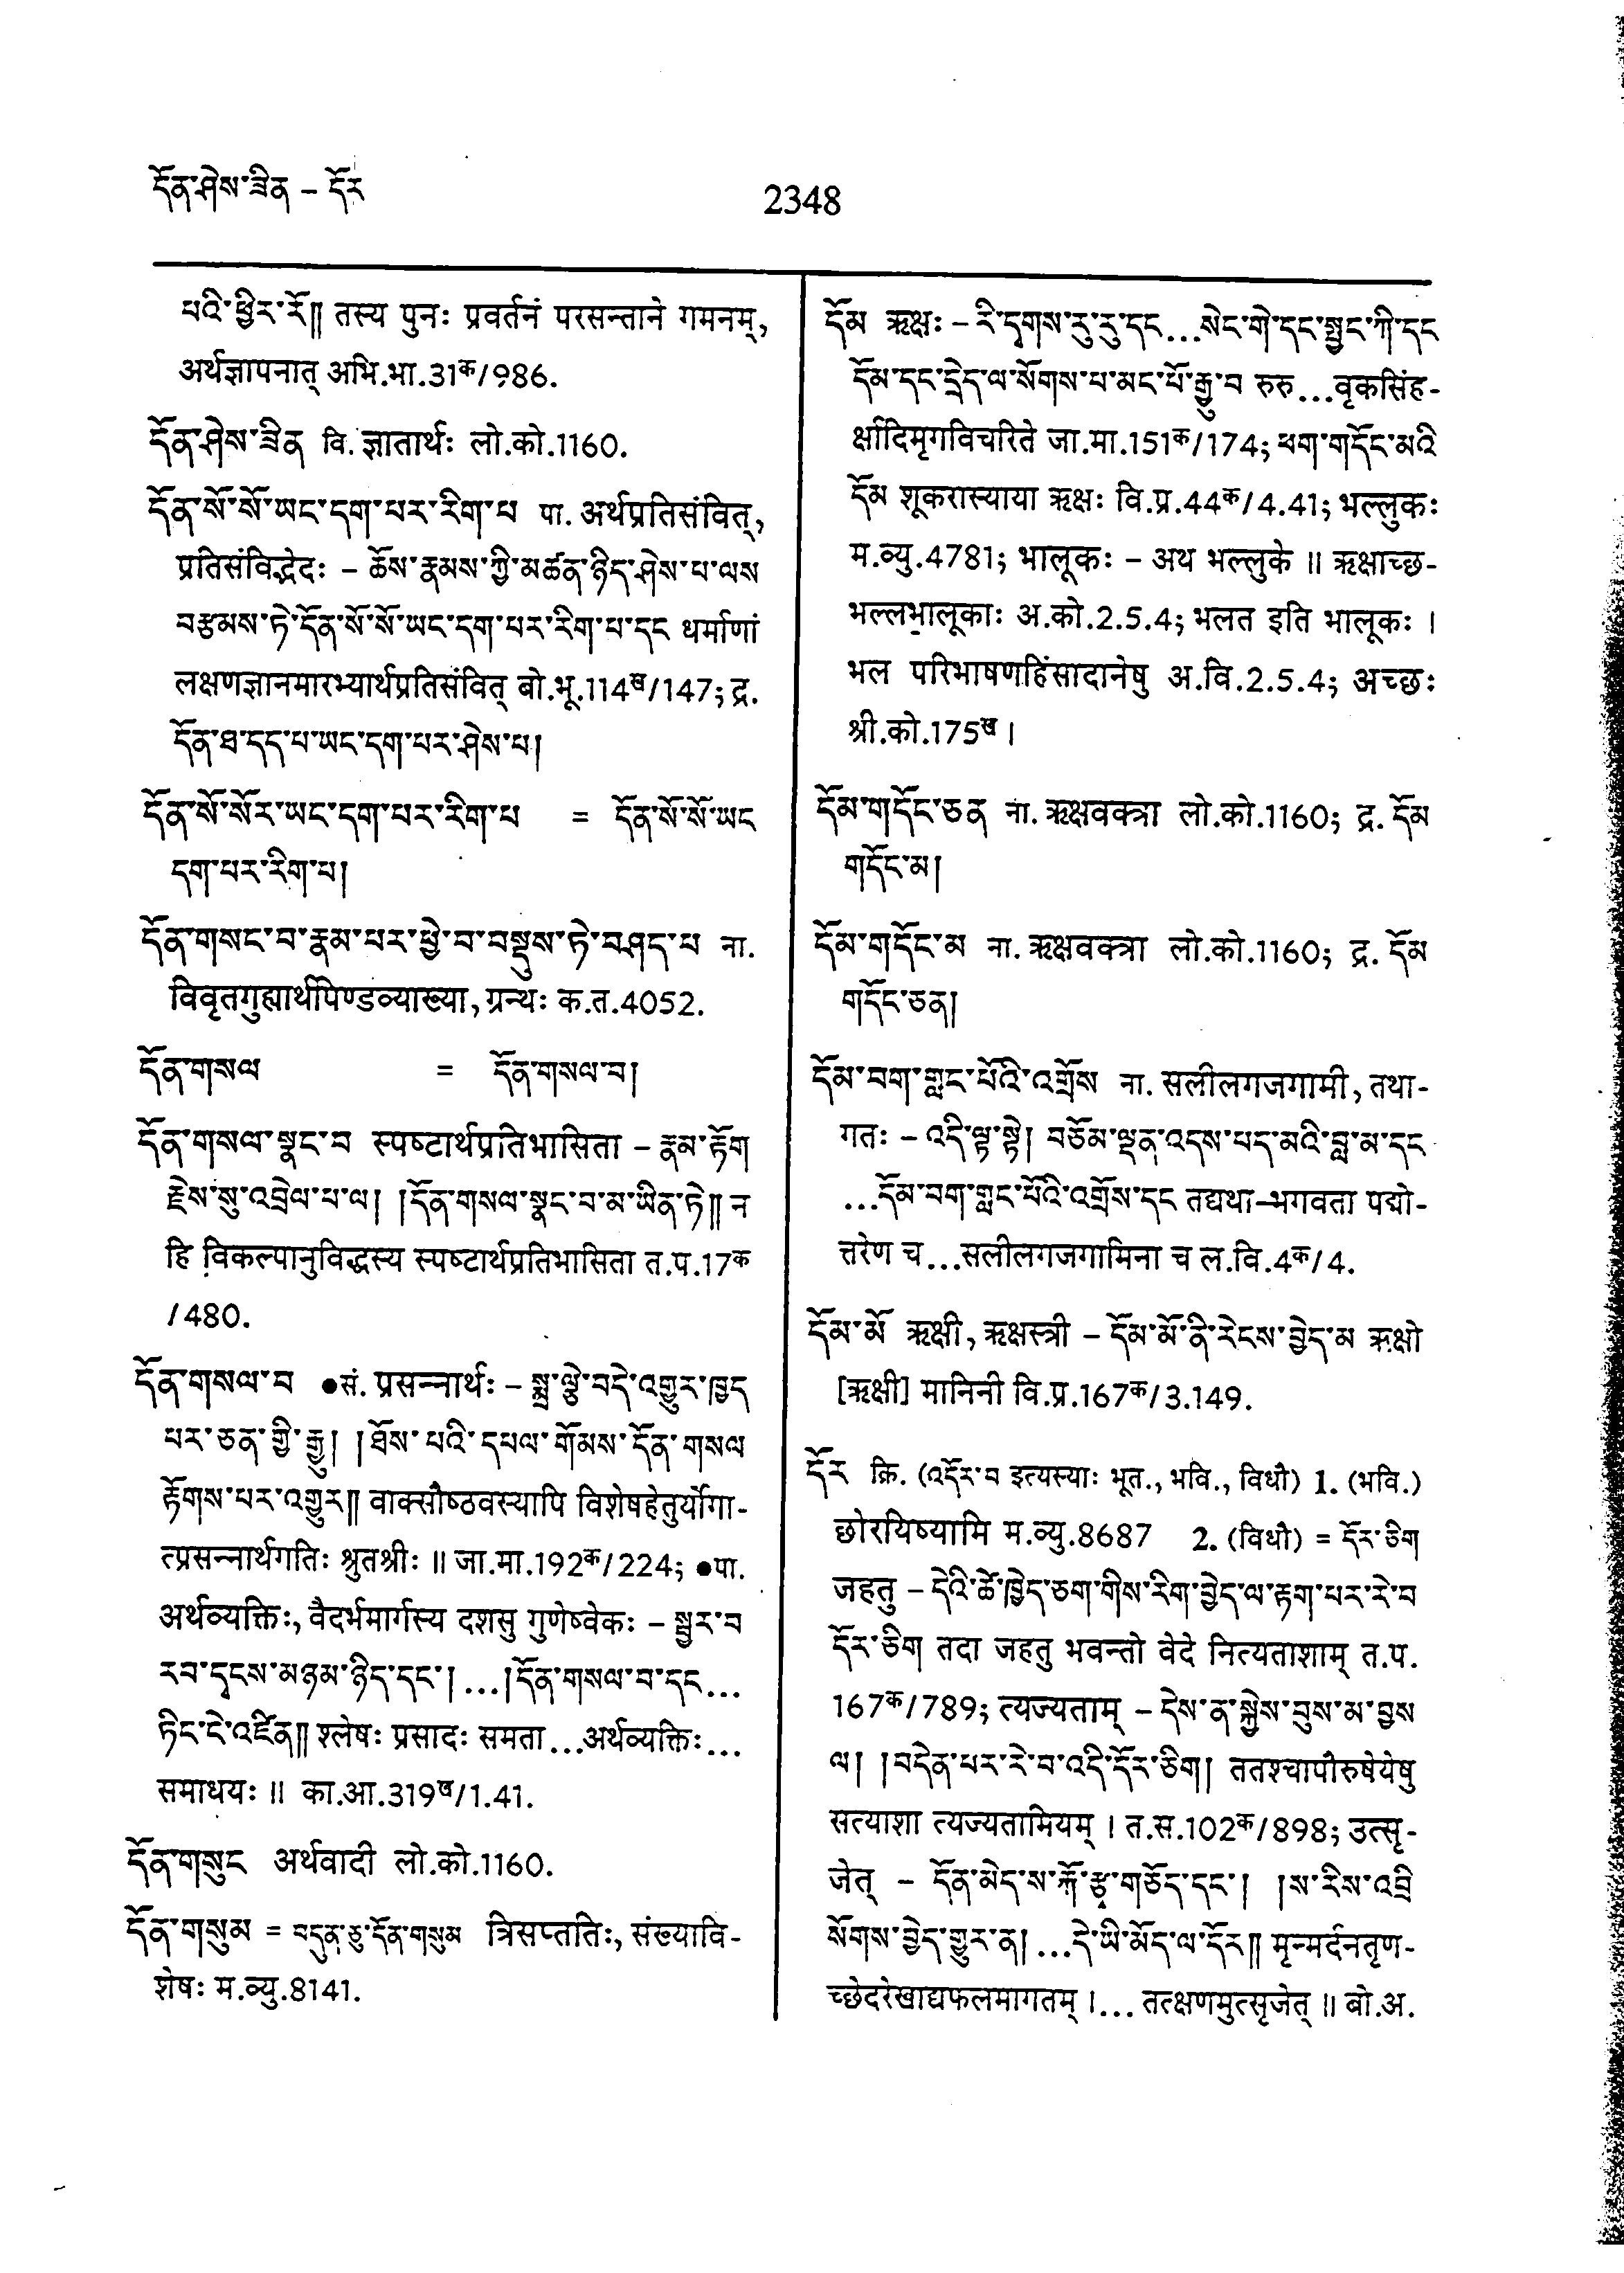 དོན་ཤེས་ཟིན – དོར
2348
པའི་ཕྱིར་རོ༎ तस्य पुनः प्रवर्तनं परसन्ताने गमनम्,
अर्थज्ञापनात् अभि.भा.31क/986.
དོན་ཤེས་ཟིན वि. ज्ञातार्थः लो.को.1160.
དོན་སོ་སོ་ཡང་དག་པར་རིག་པ पा. अर्थप्रतिसंवित्,
प्रतिसंविद्भेदः – ཆོས་རྣམས་ཀྱི་མཚན་ཉིད་ཤེས་པ་ལས
བརྩམས་ཏེ་དོན་སོ་སོ་ཡང་དག་པར་རིག་པ་དང धर्माणां
लक्षणज्ञानमारभ्यार्थप्रतिसंवित् बो.भू.114ख/147; द्र.
དོན་ཐ་དད་པ་ཡང་དག་པར་ཤེས་པ།
དོན་སོ་སོར་ཡང་དག་པར་རིག་པ = དོན་སོ་སོ་ཡང
དག་པར་རིག་པ།
དོན་གསང་བ་རྣམ་པར་ཕྱེ་བ་བསྡུས་ཏེ་བཤད་པ ना.
विवृतगुह्यार्थपिण्डव्याख्या, ग्रन्थः क.त.4052.
དོན་གསལ = དོན་གསལ་བ།
དོན་གསལ་སྣང་བ स्पष्टार्थप्रतिभासिता – རྣམ་རྟོག
རྗེས་སུ་འབྲེལ་པ་ལ། །དོན་གསལ་སྣང་བ་མ་ཡིན་ཏེ༎ न
हि विकल्पानुविद्धस्य स्पष्टार्थप्रतिभासिता त.प.17क
/480.
དོན་གསལ་བ ●सं. प्रसन्नार्थः – སྨྲ་ལྕེ་བདེ་འགྱུར་ཁྱད
པར་ཅན་གྱི་རྒྱུ། །ཐོས་པའི་དཔལ་གོམས་དོན་གསལ
རྟོགས་པར་འགྱུར༎ वाक्सौष्ठवस्यापि विशेषहेतुर्योगा-
त्प्रसन्नार्थगतिः श्रुतश्रीः ॥ जा.मा.192क/224; ●पा.
अर्थव्यक्तिः, वैदर्भमार्गस्य दशसु गुणेष्वेकः – སྦྱར་བ
རབ་དྭངས་མཉམ་ཉིད་དང་།...།དོན་གསལ་བ་དང...
ཏིང་ངེ་འཛིན༎ श्लेषः प्रसादः समता...अर्थव्यक्तिः...
समाधयः ॥ का.आ.319ख/1.41.
དོན་གསུང अर्थवादी लो.को.1160.
དོན་གསུམ = བདུན་ཅུ་དོན་གསུམ त्रिसप्ततिः, संख्यावि-
शेषः म.व्यु.8141.
དོམ ऋक्षः – རི་དྭགས་རུ་རུ་དང...སེང་གེ་དང་སྤྱང་ཀི་དང
དོམ་དང་དྲེད་ལ་སོགས་པ་མང་པོ་རྒྱུ་བ रुरु...वृकसिंह-
र्क्षादिमृगविचरिते जा.मा.151क/174; ཕག་གདོང་མའི
དོམ शूकरास्याया ऋक्षः वि.प्र.44क/4.41; भल्लुकः
म.व्यु.4781; भालूकः – अथ भल्लुके ॥ ऋक्षाच्छ-
भल्लभालूकाः अ.को.2.5.4; भलत इति भालूकः ।
भल परिभाषणहिंसादानेषु अ.वि.2.5.4; अच्छः
श्री.को.175ख ।
དོམ་གདོང་ཅན ना. ऋक्षवक्त्रा लो.को.1160; द्र. དོམ
གདོང་མ།
དོམ་གདོང་མ ना. ऋक्षवक्त्रा लो.को.1160; द्र. དོམ
གདོང་ཅན།
དོམ་བག་གླང་པོའི་འགྲོས ना. सलीलगजगामी, तथा-
गतः – འདི་ལྟ་སྟེ། བཅོམ་ལྡན་འདས་པད་མའི་བླ་མ་དང
...དོམ་བག་གླང་པོའི་འགྲོས་དང तद्यथा–भगवता पद्मो-
त्तरेण च...सलीलगजगामिना च ल.वि.4क/4.
དོམ་མོ ऋक्षी, ऋक्षस्त्री – དོམ་མོ་ནི་རེངས་བྱེད་མ ऋक्षो
[ऋक्षी] मानिनी वि.प्र.167क/3.149.
དོར क्रि. (འདོར་བ इत्यस्याः भूत., भवि., विधौ) 1. (भवि.)
छोरयिष्यामि म.व्यु.8687 2. (विधौ) = དོར་ཅིག
जहतु – དེའི་ཚེ་ཁྱེད་ཅག་གིས་རིག་བྱེད་ལ་རྟག་པར་རེ་བ
དོར་ཅིག तदा जहतु भवन्तो वेदे नित्यताशाम् त.प.
167क/789; त्यज्यताम् – དེས་ན་སྐྱེས་བུས་མ་བྱས
ལ། །བདེན་པར་རེ་བ་འདི་དོར་ཅིག། ततश्चापौरुषेयेषु
सत्याशा त्यज्यतामियम् । त.स.102क/898; उत्सृ-
जेत् – དོན་མེད་ས་རྐོ་རྩྭ་གཅོད་དང་། །ས་རིས་འབྲི
སོགས་བྱེད་གྱུར་ན།...དེ་ཡི་མོད་ལ་དོར༎ मृन्मर्दनतृण-
च्छेदरेखाद्यफलमागतम् ।... तत्क्षणमुत्सृजेत् ॥ बो.अ.